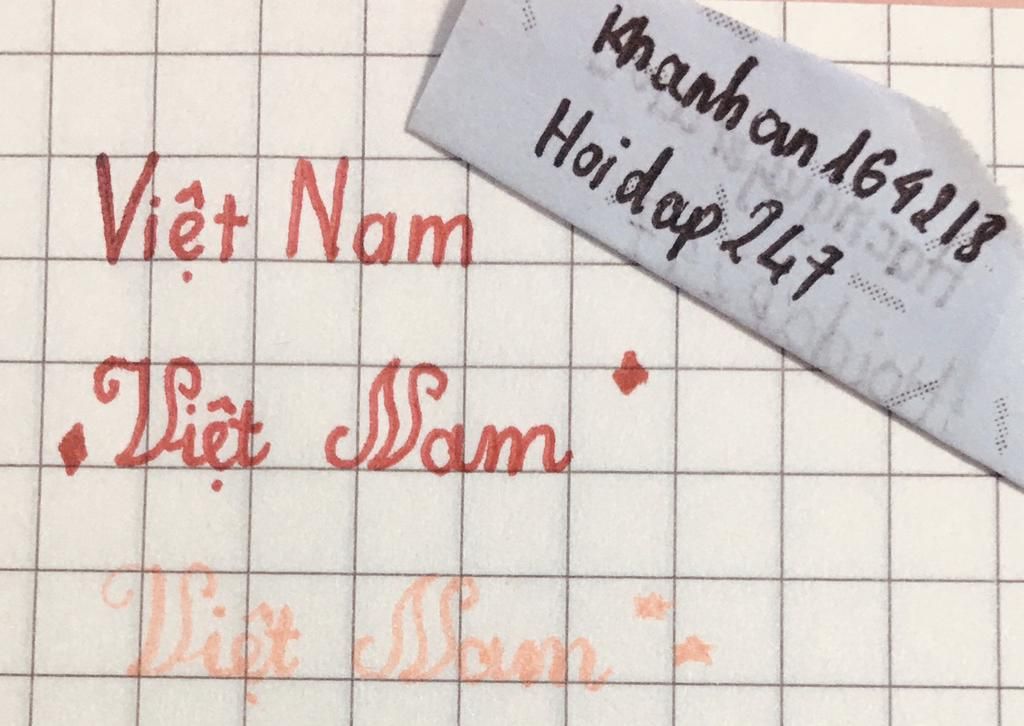 Khanhan164213
Hoidap247
Việt Nam
Việt Nam
Việt Nam